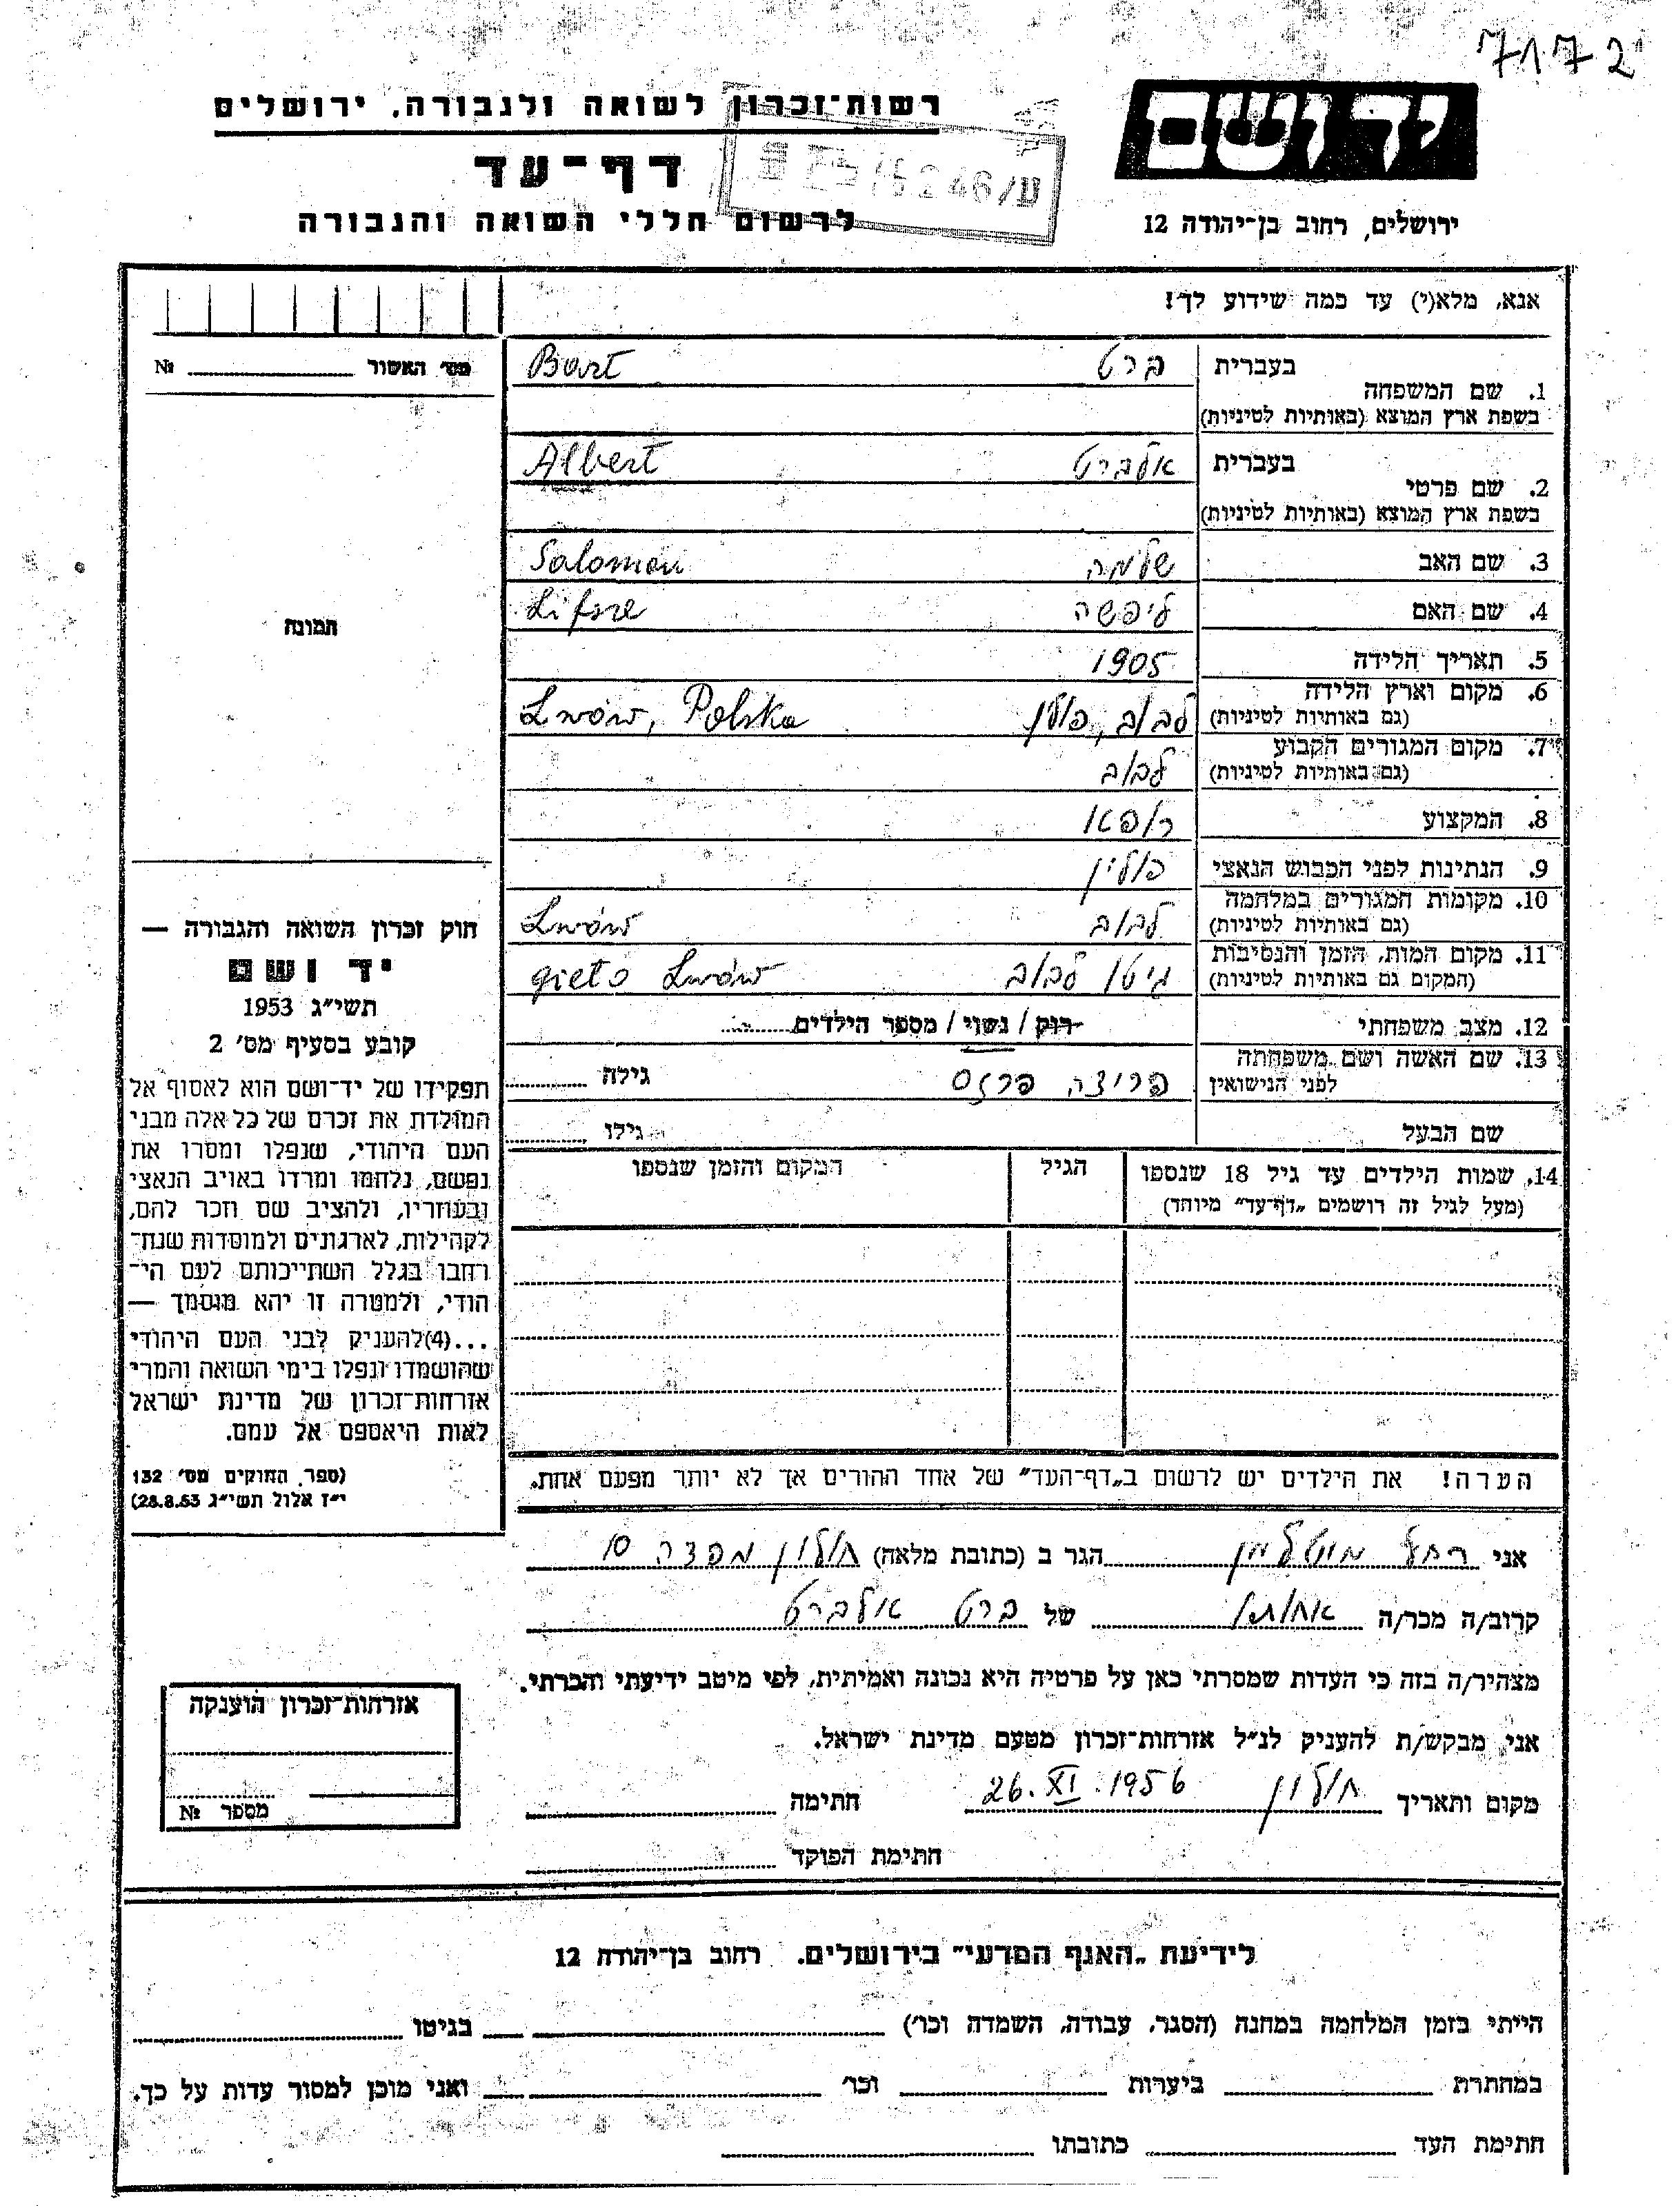 7172
יד ושם
רשות־זכרון לשואה ולגבורה, ירושלים
דף־עד
לרשום חללי השואה והגבורה
ירושלים, רחוב בן־יהודה 12
אנא, מלא(י) עד כמה שידוע לך!
מס' האשור № 
1. שם המשפחה בעברית ברט Bart
בשפת ארץ המוצא (באותיות לטיניות)
2. שם פרטי בעברית אלברט Albert
בשפת ארץ המוצא (באותיות לטיניות)
3. שם האב שלמה Salomon
4. שם האם ליפשה Lifsze
5. תאריך הלידה 1905
6. מקום וארץ הלידה לבוב, פולן Lwów, Polska
(גם באותיות לטיניות)
7. מקום המגורים הקבוע
(גם באותיות לטיניות) לבוב
8. המקצוע רופא
9. הנתינות לפני הכבוש הנאצי פולין
10. מקומות המגורים במלחמה
(גם באותיות לטיניות) לבוב Lwów
11. מקום המות, הזמן והנסיבות
(המקום גם באותיות לטיניות) גיטו לבוב gieto Lwów
12. מצב משפחתי רוק / נשוי / מספר הילדים
13. שם האשה ושם משפחתה
לפני הנישואין פריצה גילה
שם הבעל גילו
14. שמות הילדים עד גיל 18 שנספו הגיל המקום והזמן שנספו
(מעל לגיל זה רושמים „דף־עד" מיוחד)
הערה! את הילדים יש לרשום ב„דף־העד" של אחד ההורים אך לא יותר מפעם אחת.
תמונה
חוק זכרון השואה והגבורה —
יד ושם
תשי"ג 1953
קובע בסעיף מס' 2
תפקידו של יד־ושם הוא לאסוף אל
המולדת את זכרם של כל אלה מבני
העם היהודי, שנפלו ומסרו את
נפשם, נלחמו ומרדו באויב הנאצי
ובעוזריו, ולהציב שם וזכר להם,
לקהילות, לארגונים ולמוסדות שנח־
רחבו בגלל השתייכותם לעם הי־
הודי, ולמטרה זו יהא מוסמך —
...(4)להעניק לבני העם היהודי
שהושמדו ונפלו בימי השואה והמרי
אזרחות־זכרון של מדינת ישראל
לאות היאספם אל עמם.
(ספר החוקים מס' 132
י"ז אלול תשי"ג 28.8.53)
אני רחל הגר ב (כתובת מלאה) חולון 10
קרוב/ה מכר/ה אחותו של ברט אלברט
מצהיר/ה בזה כי העדות שמסרתי כאן על פרטיה היא נכונה ואמיתית, לפי מיטב ידיעתי והכרתי.
אני מבקש/ת להעניק לנ"ל אזרחות־זכרון מטעם מדינת ישראל.
מקום ותאריך חולון 26.XI.1956 חתימה
חתימת הפוקד
אזרחות־זכרון הוענקה
מספר №
לידיעת „האגף המדעי" בירושלים, רחוב בן־יהודה 12
הייתי בזמן המלחמה במחנה (הסגר, עבודה, השמדה וכו') בגיטו
במחתרת ביערות וכו' ואני מוכן למסור עדות על כך.
חתימת העד כתובתו